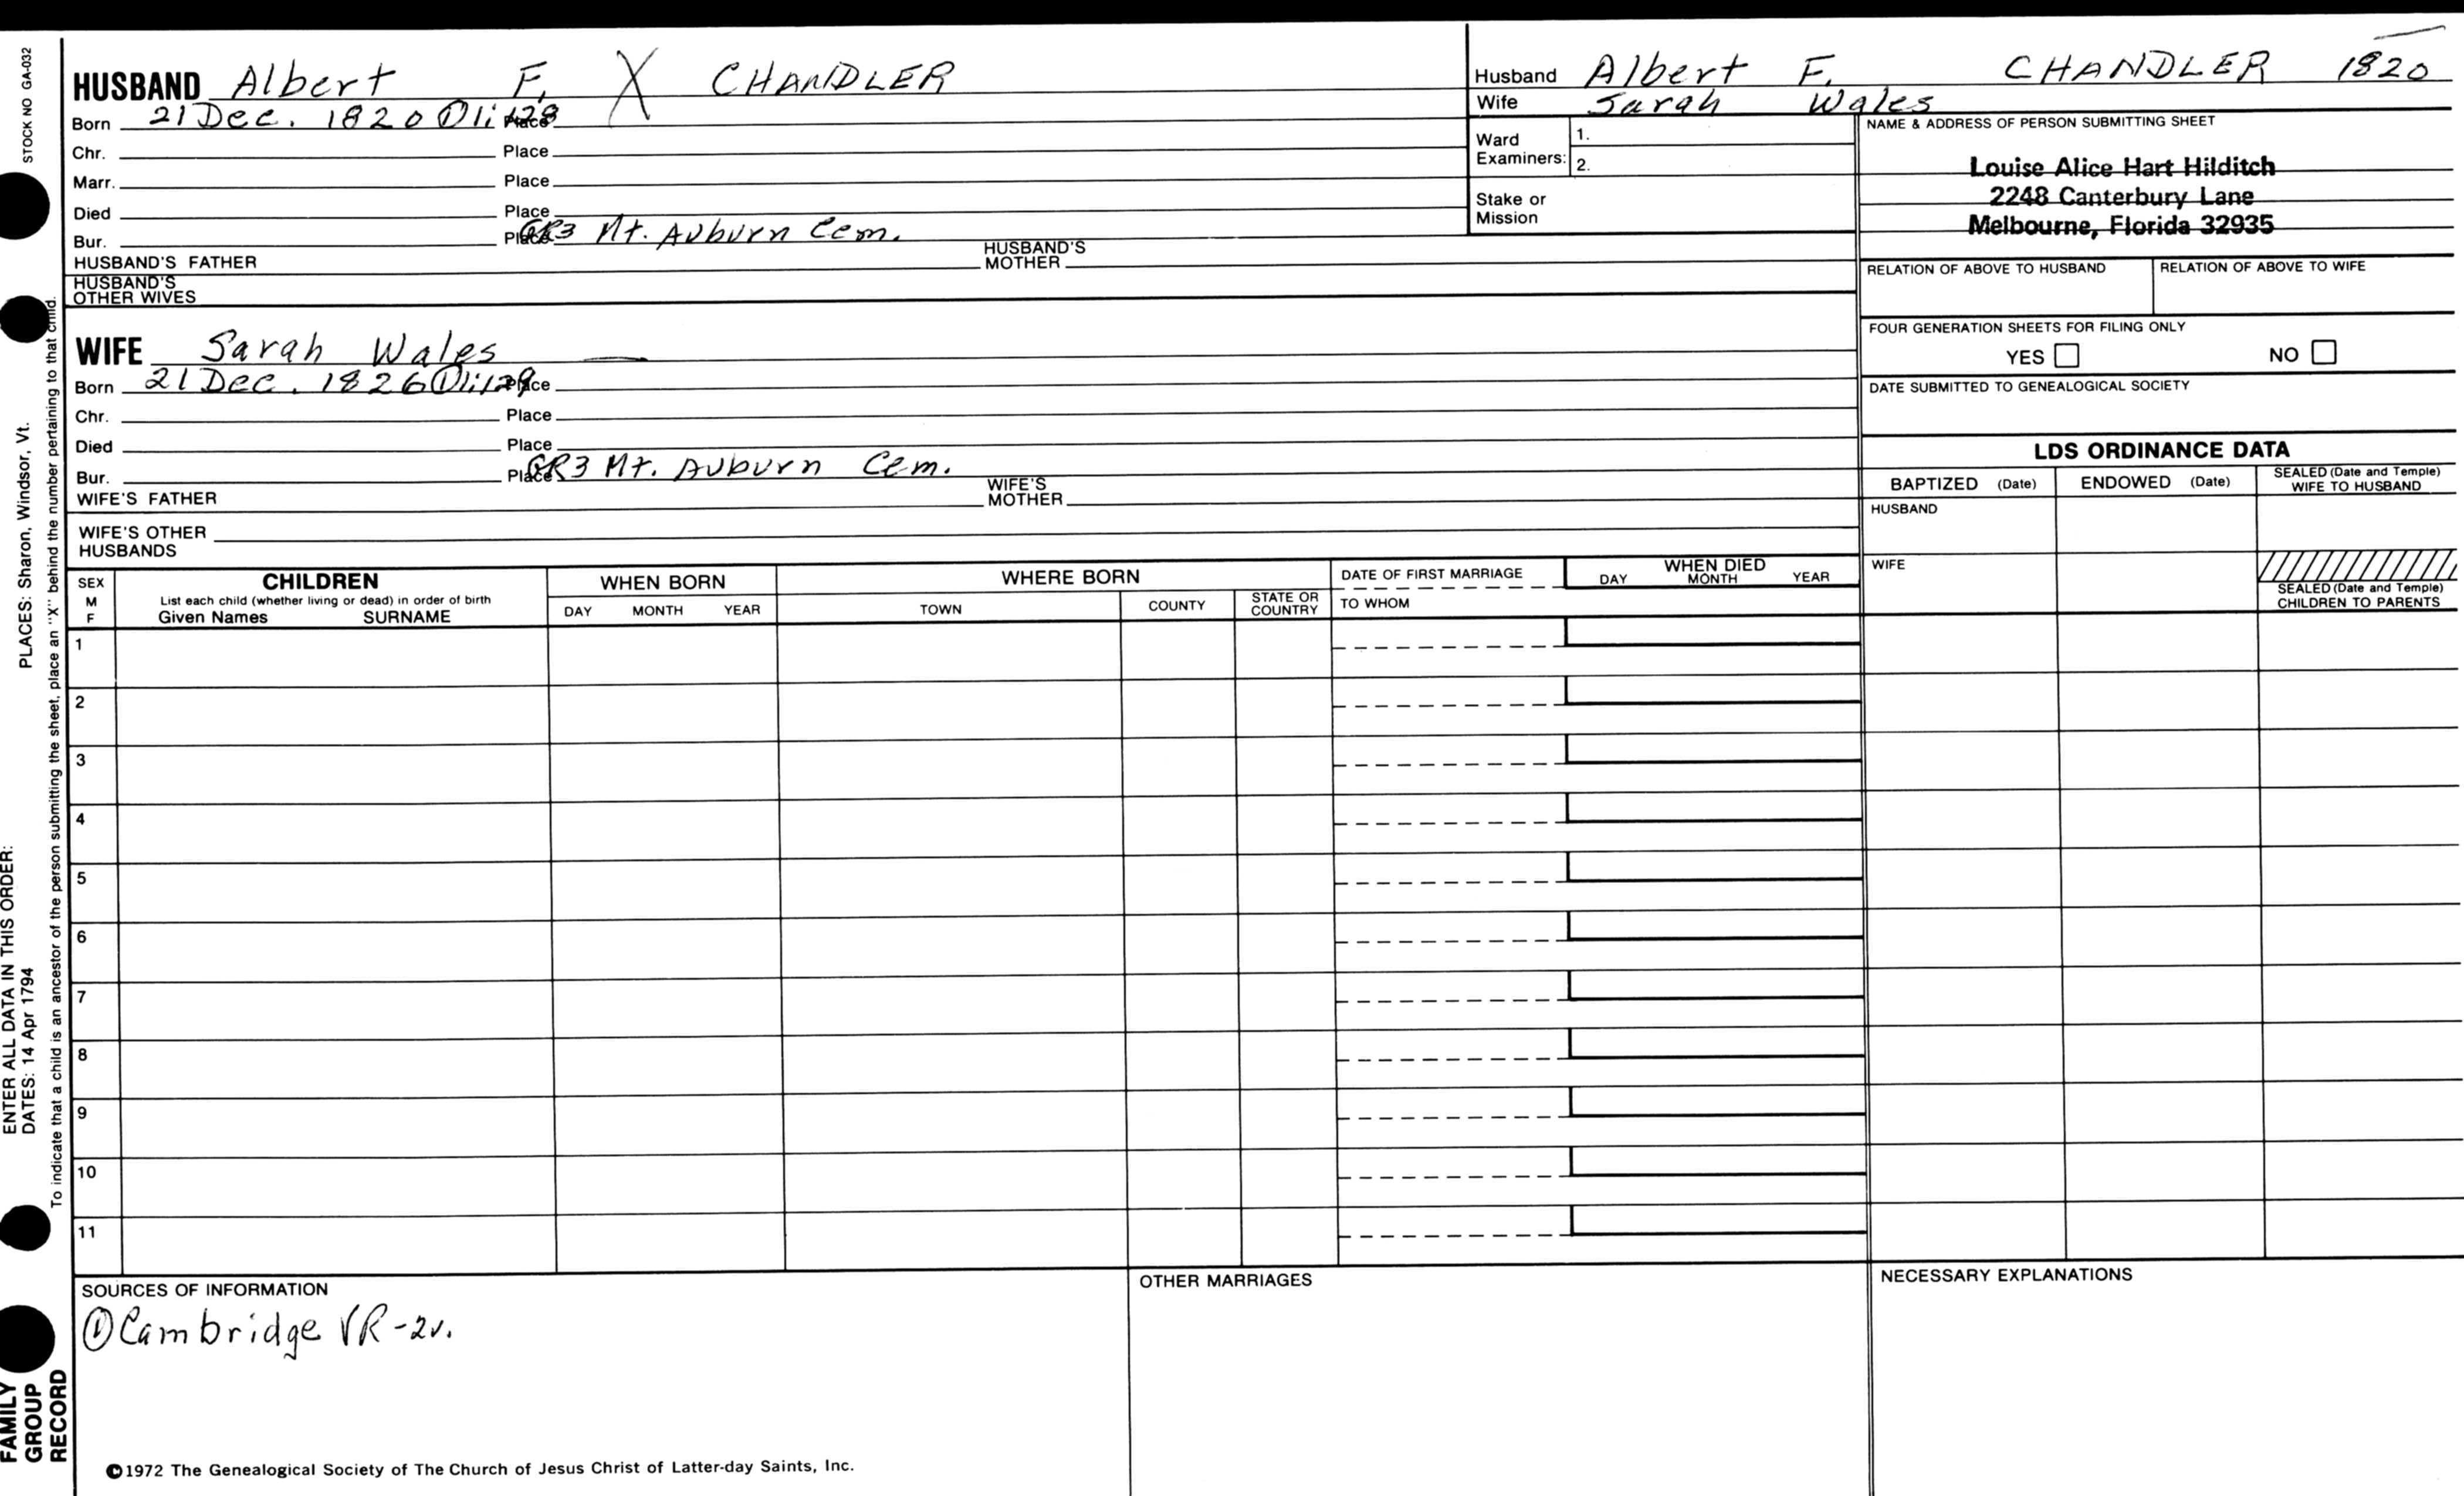 HUSBAND Albert F. X CHANDLER
Born 21 Dec. 1820 ① i:128 Place
Chr. Place
Marr. Place
Died Place
Bur. Place GR3 Mt. Auburn Cem.
HUSBAND'S FATHER HUSBAND'S MOTHER
HUSBAND'S OTHER WIVES
WIFE Sarah Wales —
Born 21 Dec. 1826 ① i:128 Place
Chr. Place
Died Place
Bur. Place GR3 Mt. Auburn Cem.
WIFE'S FATHER WIFE'S MOTHER
WIFE'S OTHER HUSBANDS
Husband Albert F. CHANDLER 1820
Wife Sarah Wales
Ward Examiners: 1.
2.
Stake or Mission
NAME & ADDRESS OF PERSON SUBMITTING SHEET
Louise Alice Hart Hilditch
2248 Canterbury Lane
Melbourne, Florida 32935
RELATION OF ABOVE TO HUSBAND RELATION OF ABOVE TO WIFE
FOUR GENERATION SHEETS FOR FILING ONLY
YES NO
DATE SUBMITTED TO GENEALOGICAL SOCIETY
LDS ORDINANCE DATA
BAPTIZED (Date) ENDOWED (Date) SEALED (Date and Temple) WIFE TO HUSBAND
HUSBAND
WIFE
SEALED (Date and Temple) CHILDREN TO PARENTS
SEX M F
CHILDREN
List each child (whether living or dead) in order of birth
Given Names SURNAME
WHEN BORN
DAY MONTH YEAR
WHERE BORN
TOWN COUNTY STATE OR COUNTRY
DATE OF FIRST MARRIAGE
TO WHOM
WHEN DIED
DAY MONTH YEAR
1
2
3
4
5
6
7
8
9
10
11
SOURCES OF INFORMATION
① Cambridge VR-2v.
OTHER MARRIAGES
NECESSARY EXPLANATIONS
©1972 The Genealogical Society of The Church of Jesus Christ of Latter-day Saints, Inc.
STOCK NO GA-032
PLACES: Sharon, Windsor, Vt.
ENTER ALL DATA IN THIS ORDER:
DATES: 14 Apr 1794
To indicate that a child is an ancestor of the person submitting the sheet, place an "X" behind the number pertaining to that child.
FAMILY
GROUP
RECORD